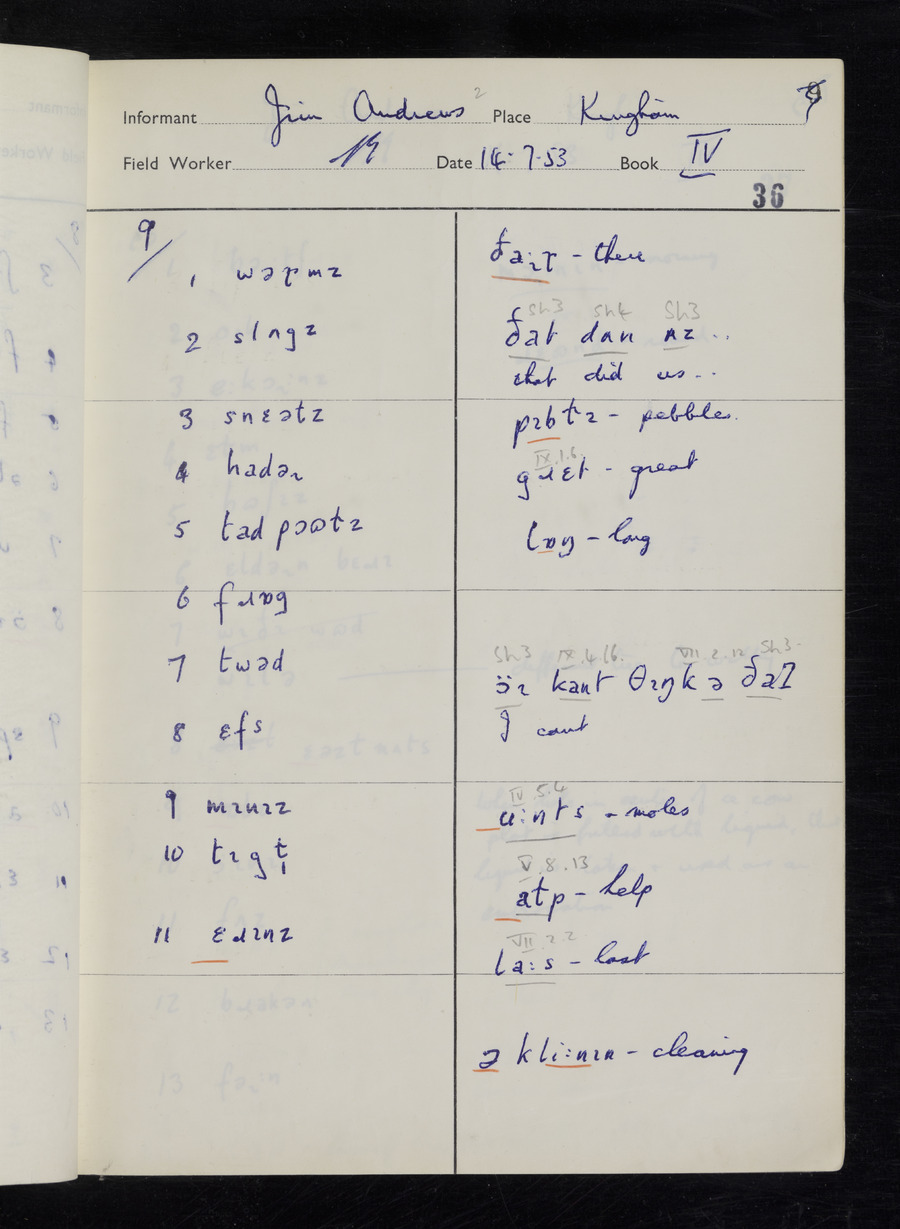 Informant Jim Andrews 2 Place Kingham 9
Field Worker Date 14-7-53 Book IV
36
9/
1 wəɽmz
2 slʌgz
3 snɛətz
4 hadəɽ
5 tad pɔʊtz
6 fɹɒg
7 twəd
8 ɛfs
9 mɪnɪz
10 tɪgɫ̩
11 ɛɹɪnz
ða:ɪɽ - there
Sh3 Sh4 Sh3
ðat dɪn ʌz ..
that did us - -
pɪbɫz - pebbles.
IX.1.6.
gɹɛt - great
lɒŋ - long
Sh3 IX.4.16. VII.2.12 Sh3
ɔ̈ɪ kant θɪŋk ə ðat
I cant
IV.5.4
u:nts - moles
V.8.13
aɫp - help
VII.2.2
la:s - last
ə kli:nɪn - cleaning